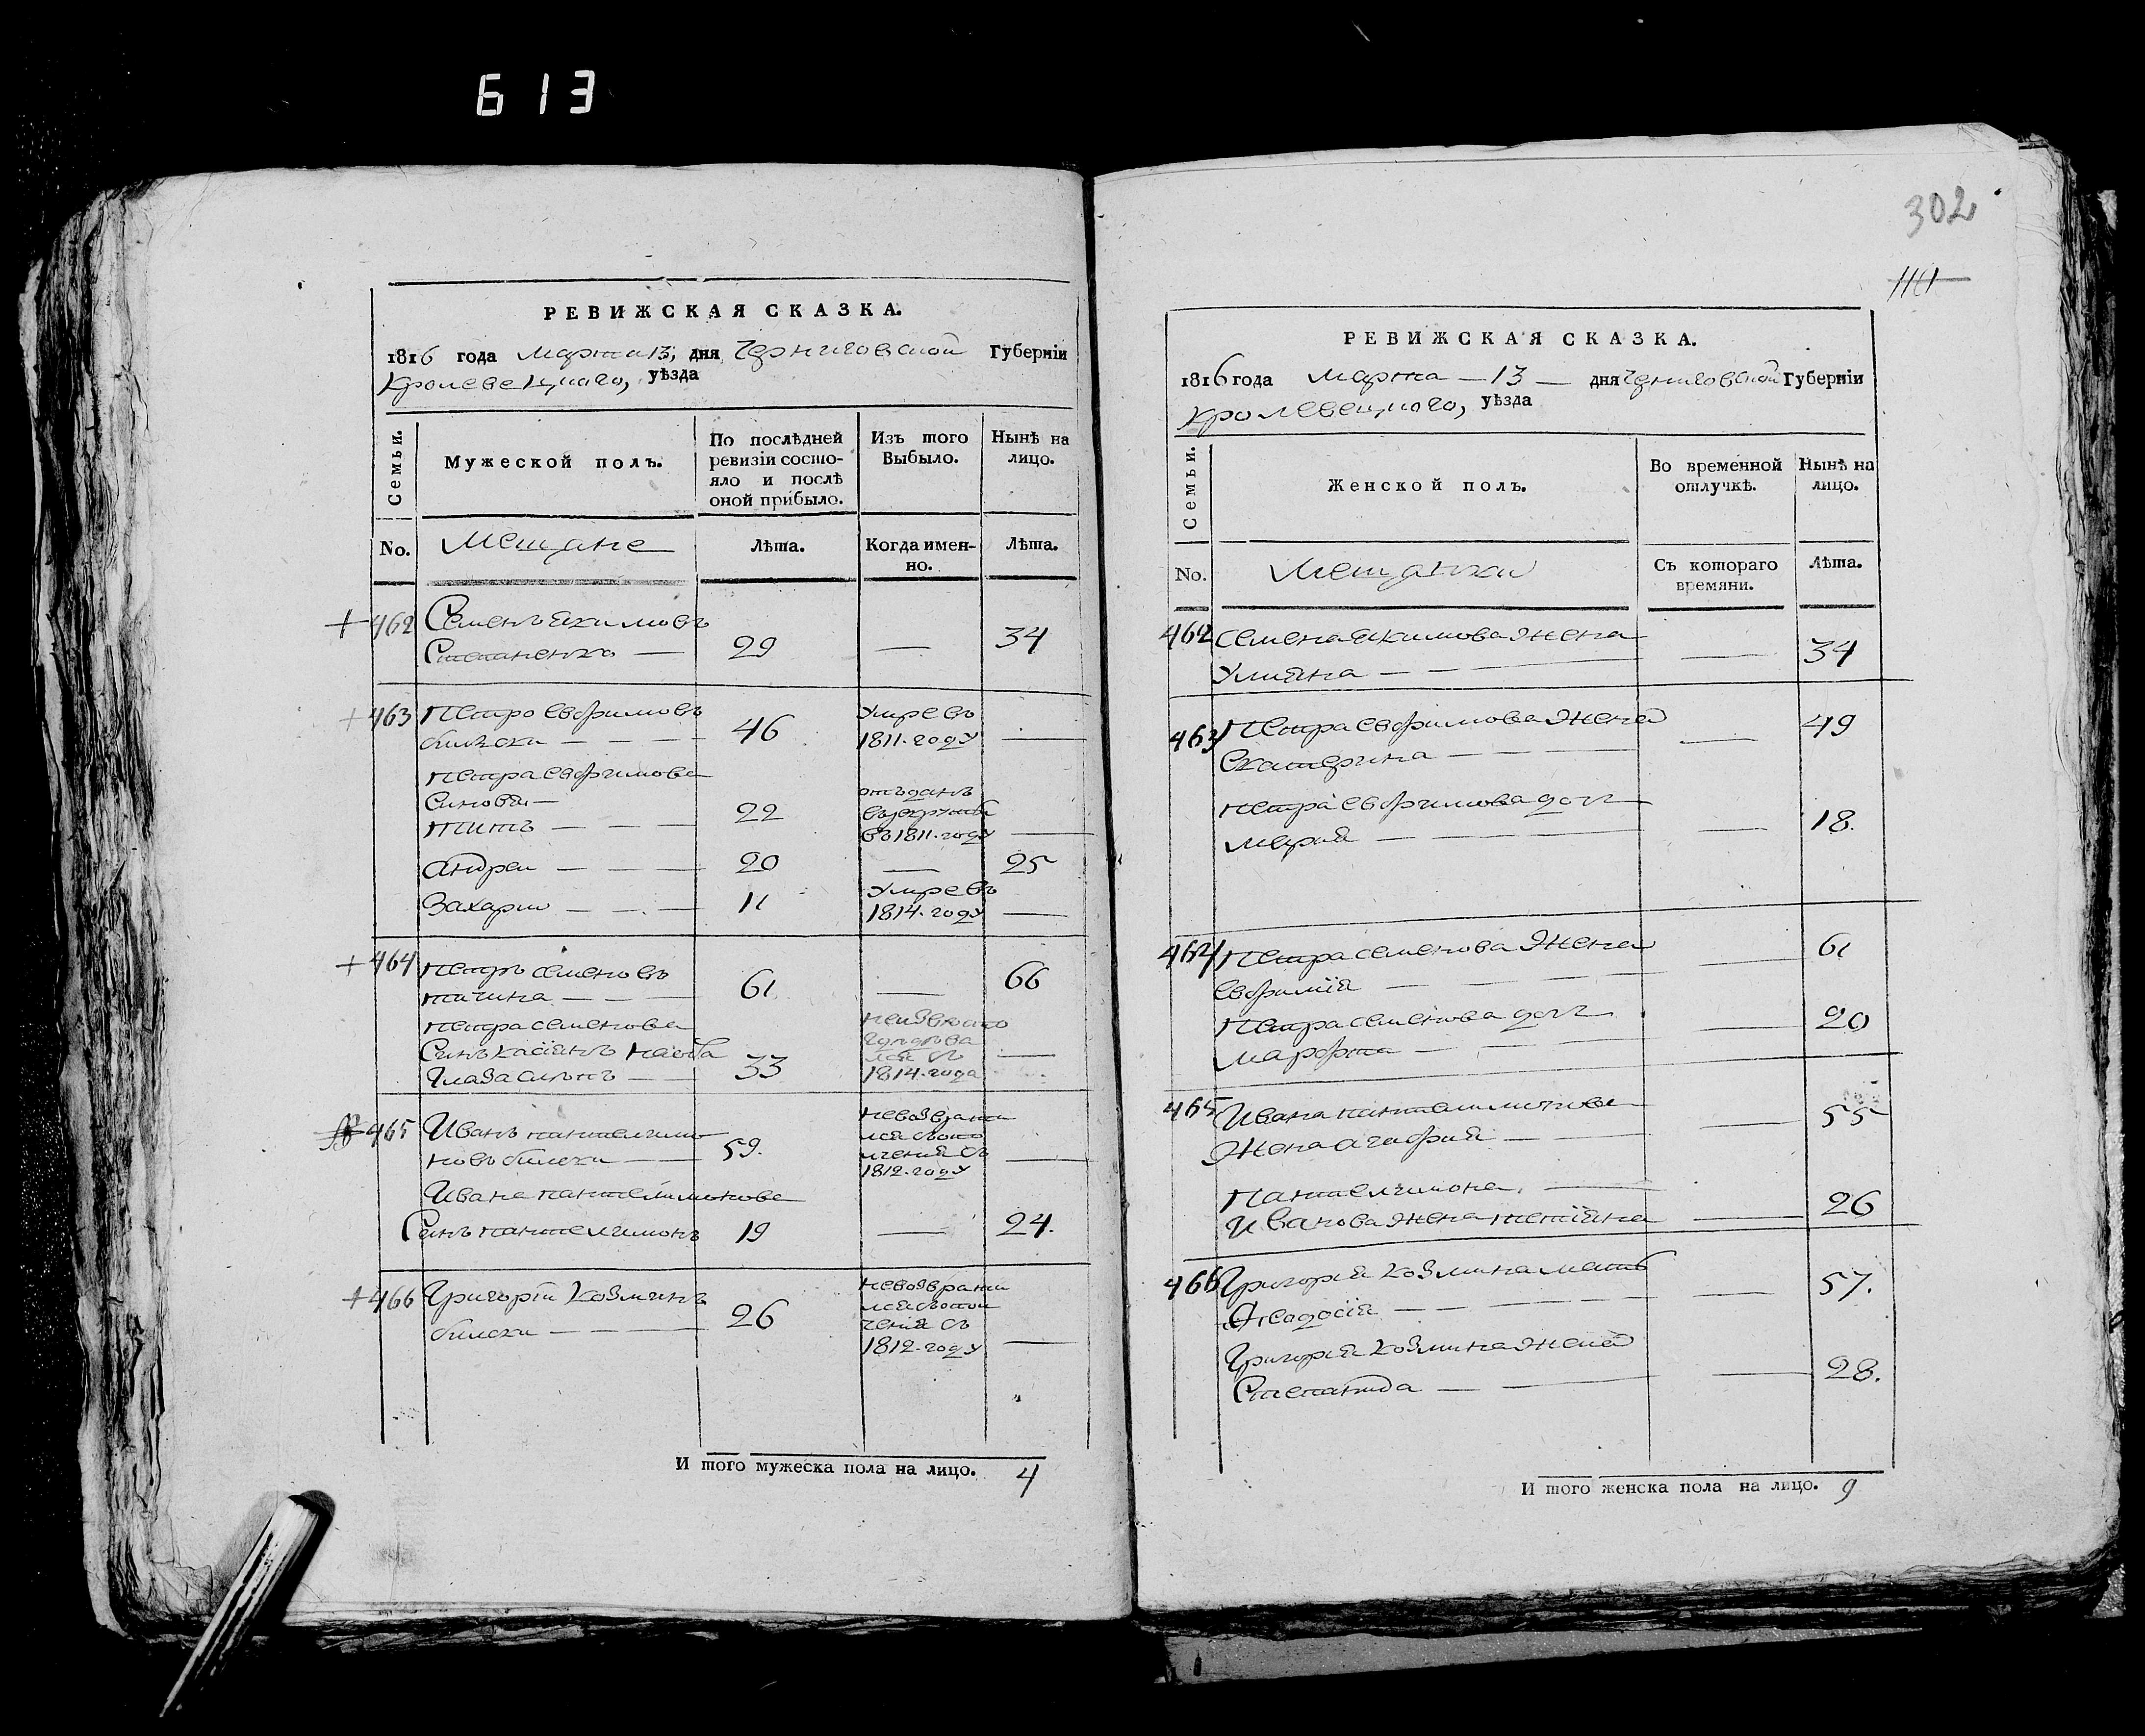 613
РЕВИЖСКАЯ СКАЗКА.
1816 года марта 13, дня Черниговской Губерніи
Кролевецкого, уѣзда
Семьи.
Мужеской полъ.
По послѣдней ревизіи состо-
яло и послѣ оной прибыло.
Изъ того Выбыло.
Нынѣ на лицо.
No.
Мещане
Лѣта.
Когда имен-
но.
Лѣта.
+ 462 Семенъ Якимовъ
Степаненко — 29 — 34
+ 463 Петро Евфимовъ
46
Умре въ
1811. году —
Петра Евфимова
Синовя —
Титъ — — 22
отъданъ
въ 1811. году —
Андреи — — 20 — 25
Захарии — — 11
Умре въ
1814. году —
+ 464 Петръ Семеновъ
61 — 66
Петра Семенова
Синъ Касіянъ
33
1814. года —
465 Иванъ Пантелимо
новъ — 59.
невозврати
лся съ опо
лченія съ
1812. году —
Ивана Пантелимонова
Синъ Пантелимонъ 19 — 24.
+ 466 Григорій Козминъ
26
невозврати
лся съ опол
ченія съ
1812. году —
И того мужеска пола на лицо. 4
302
РЕВИЖСКАЯ СКАЗКА.
1816 года марта — 13 — дня Черниговской Губерніи
Кролевецкого, уѣзда
Семьи.
Женской полъ.
Во временной отлучкѣ.
Нынѣ на лицо.
No.
Мещанки
Съ котораго времяни.
Лѣта.
462 Семена Якимова Жена
Улияна — — 34
463 Петра Евфимова Жена 49
Екатерина — —
Петра Евфимова доч
Мария — — 18.
464 Петра Семенова Жена 61
Евфимія — —
Петра Семенова доч 20
Марфа — —
465 Ивана Пантелимонова 55
Жена Агафия — —
Пантелимона —
Иванова Жена Тетіяна — 26
466 Григория Козмина мать 57.
Феодосія — —
Григория Козмина Жена
Степанида — — 28.
И того женска пола на лицо. 9